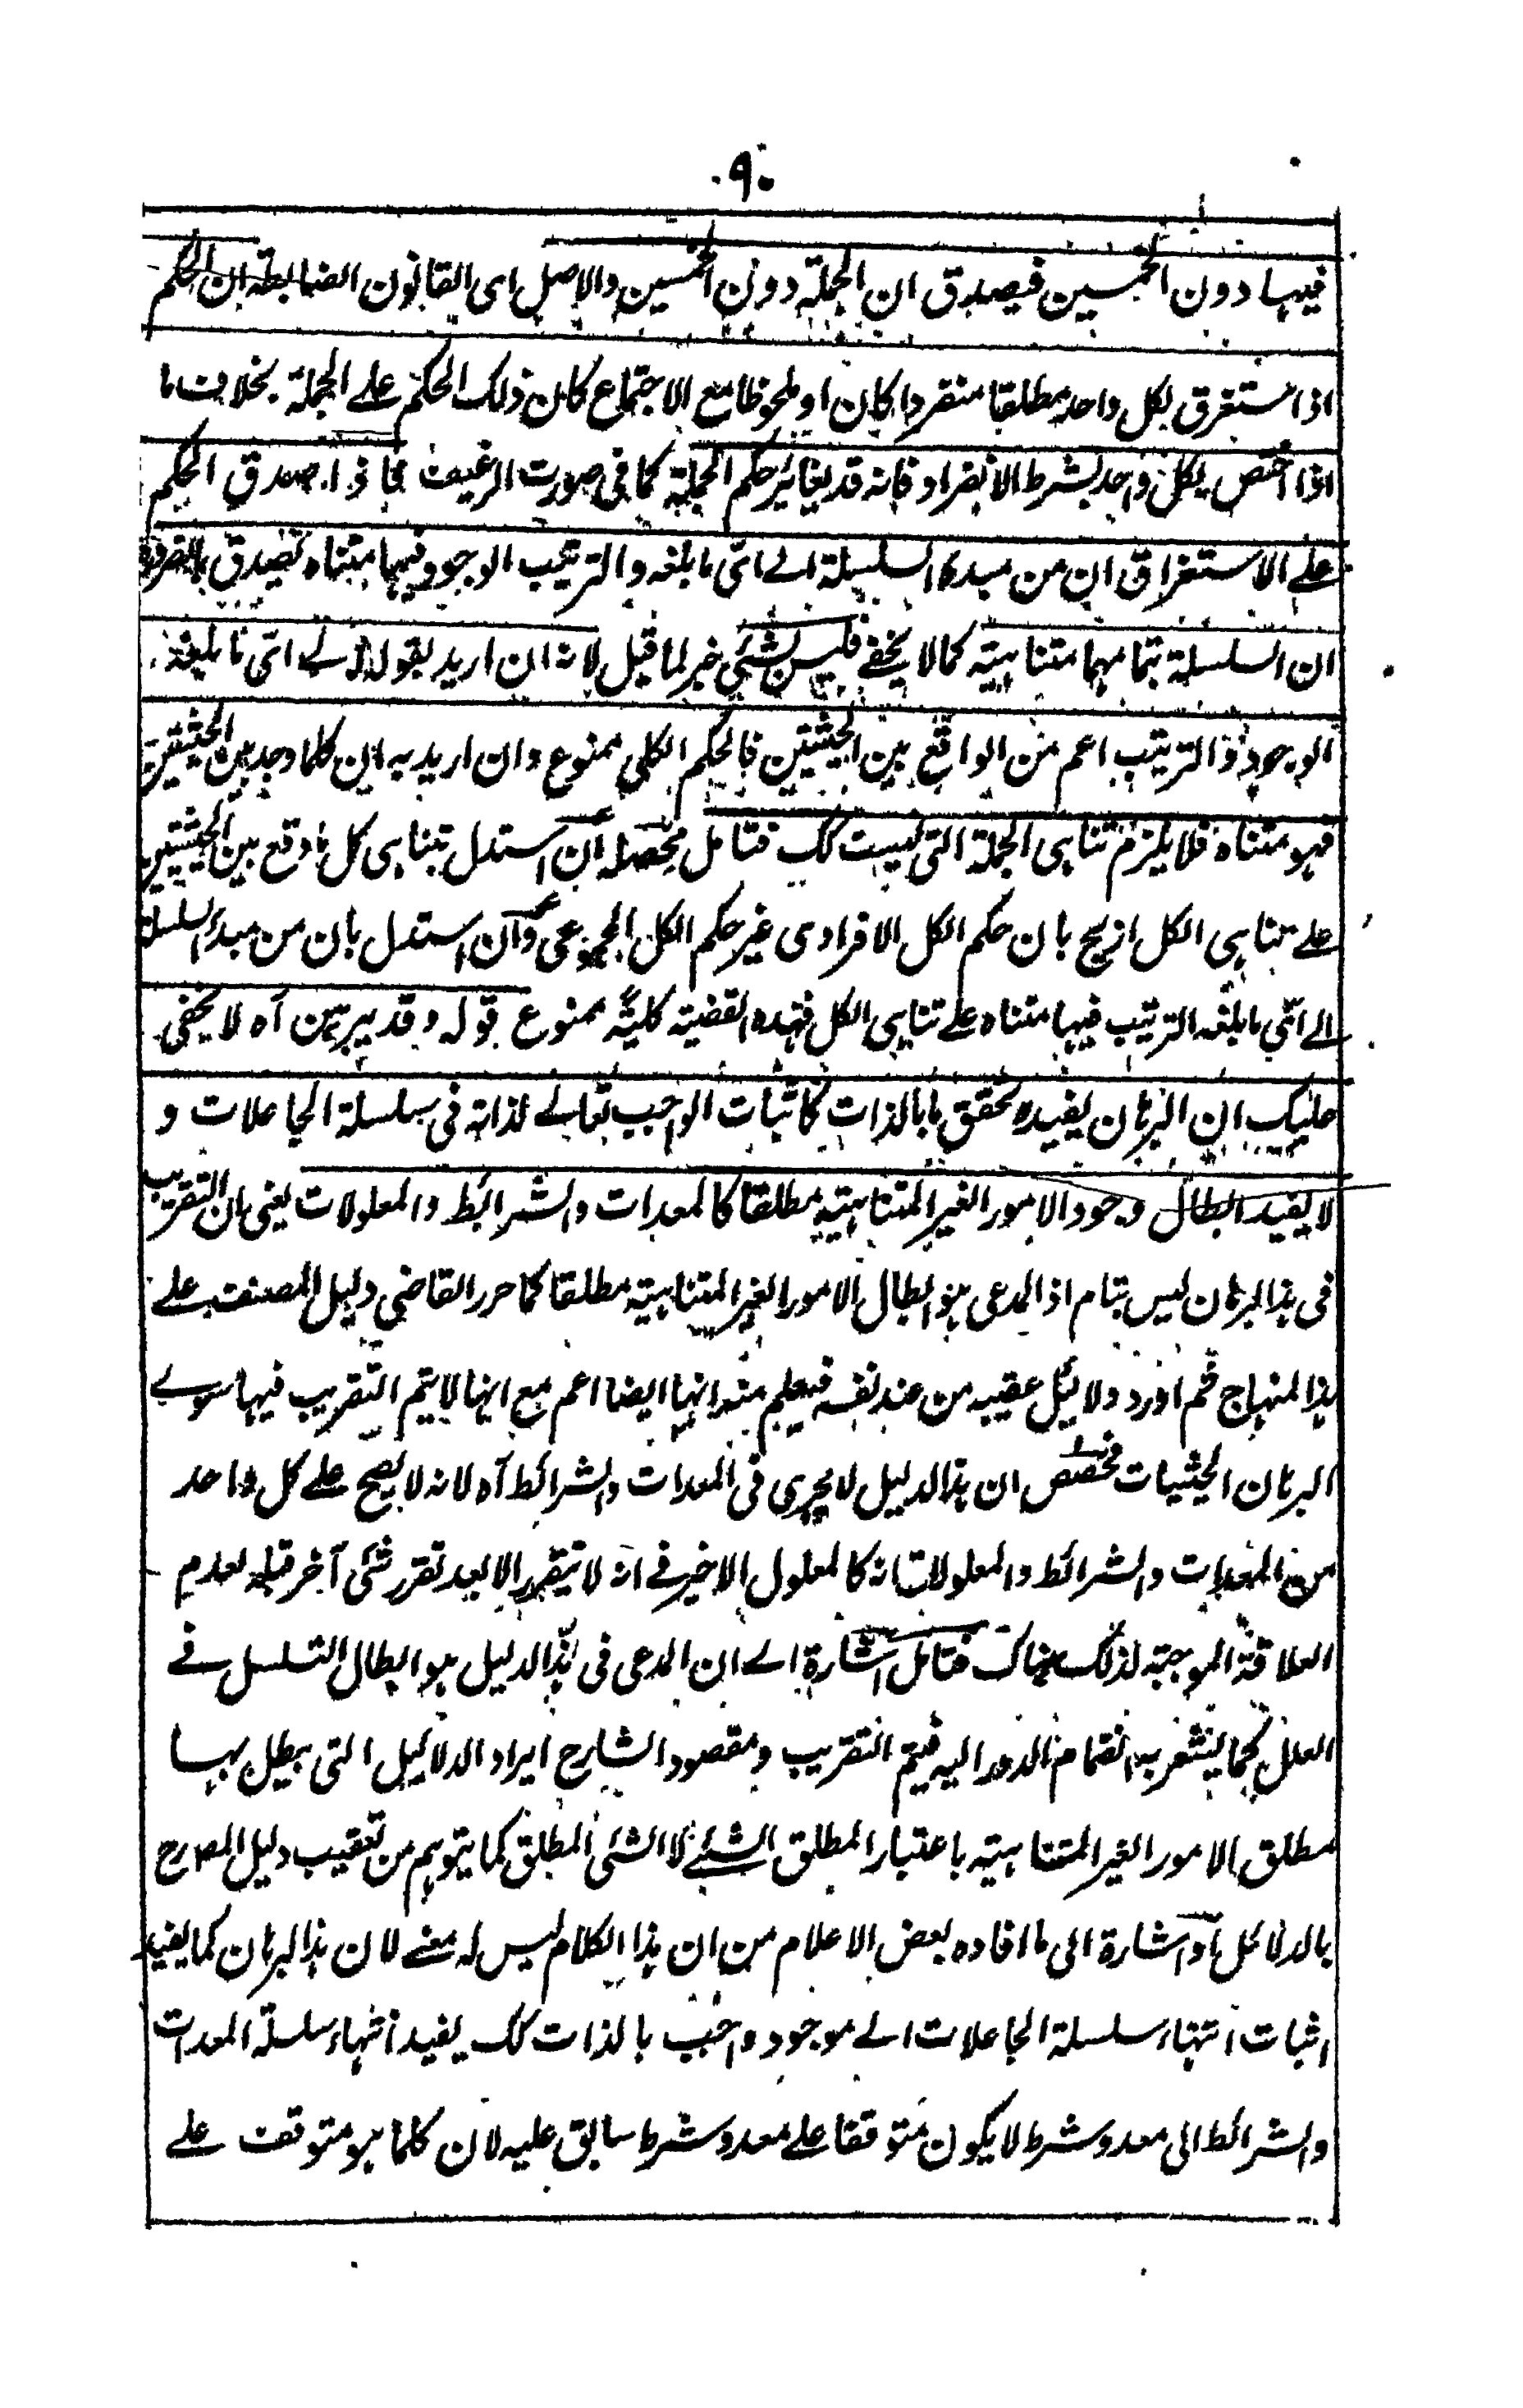 ٩٠
فيها دون الخمسين فيصدق ان الجملة دون الخمسين والاصل اى القانون الضابطة ان الحكم
اذا استغرق لكل واحد مطلقا منفردا كان او ملحوظا مع الاجتماع كان ذلك الحكم على الجملة بخلاف ما
اذا اختص بكل واحد بشرط الانفراد فانه قد يغائر حكم الجملة كما فى صورت الرغيف فاذا صدق الحكم
على الاستغراق ان من مبدء السلسلة الى اىّ ما بلغه والترتيب الوجود فيها متناه تصدق بالضرورة
ان السلسلة بتمامها متناهية كما لا يخفى فليس لشئ خير لما قيل لانه ان اريد بقوله الى اىّ ما بلغه
الوجود والترتيب اعم من الواقع بين الحيثيتين فالحكم الكلى ممنوع وان اريد به ان كلما وجد بين الحيثيتين
فهو متناه فلا يلزم تناهى الجملة التى ليست كك فتامل محصله ان استدل بتناهى كل ما وقع بين الحيثيتين
على تناهى الكل ازيح بان حكم الكل الافرادى غير حكم الكل المجموعى وان استدل بان من مبدء السلسلة
الى اىّ ما بلغه الترتيب فيها متناه على تناهى الكل فهذه القضية كلية ممنوع قوله وقد يبرهن آه لا يخفى
عليك ان البرهان يفيده تحقق ما بالذات كاثبات الواجب تعالى لذاته فى سلسلة الجاعلات و
لا يفيد ابطال وجود الامور الغير المتناهية مطلقا كالمعدات والشرائط والمعلولات يعنى ان التقريب
فى هذا البرهان ليس بتام اذ المدعى هو ابطال الامور الغير المتناهية مطلقا كما حرر القاضى دليل المصنف على
هذا المنهاج ثم اورد دلائل عقيبه من عند نفسه فيعلم منه انها ايضا اعم مع انها لا يتم التقريب فيها سوى
البرهان الحيثيات فمحصله ان هذا الدليل لا يجرى فى المعدات والشرائط آه لانه لا يصح على كل واحد
من المعدات والشرائط والمعلولات انه كالمعلول الاخير فى انه لا يتقرر الا بعد تقرر شئ آخر قبله لعدم
العلاقة الموجبة لذلك هناك فتامل اشارة الى ان المدعى فى هذا الدليل هو ابطال التسلسل فى
العلل كما يشعر به انضمام الدور اليه فيتم التقريب ومقصود الشارح ايراد الدلائل التى يبطل بها
مطلق الامور الغير المتناهية باعتبار المطلق الشئ لا الشئ المطلق كما يتوهم من تعقيب دليل المصرح
بالدلائل او اشارة الى ما افاده بعض الاعلام من ان هذا الكلام ليس له معنى لان هذا البرهان كما يفيد
اثبات انتهاء سلسلة الجاعلات الى موجود واجب بالذات كك يفيد انتهاء سلسلة المعدات
والشرائط الى معد وشرط لا يكون متوقفا على معد وشرط سابق عليه لان كلما هو متوقف على